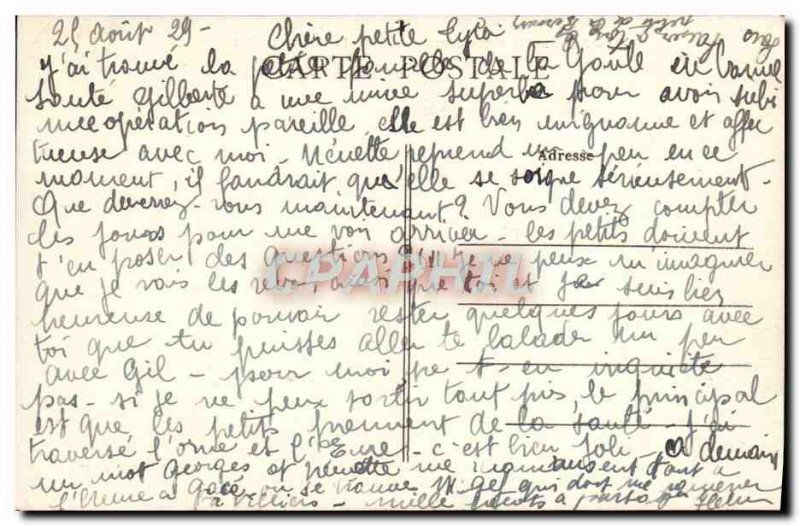 25 Août 29 - Chère petite
CARTE POSTALE
j'ai trouvé la petite famille de la Goule en bonne
santé Gilberte a une mine superbe pour avoir subi
une opération pareille, elle est bien mignonne et affec
tueuse avec moi - Nénette reprend un peu en ce
Adresse
moment, il faudrait qu'elle se soigne sérieusement -
Que devenez-vous maintenant ? Vous devez compter
les jours pour me voir arriver - les petits doivent
t'en poser des questions je ne peux m'imaginer
que je vais les revoir ainsi que toi et je suis bien
CPAPHIL
heureuse de pouvoir rester quelques jours avec
toi que tu puisses aller te balader un peu
avec Gil - pour moi ne t'en inquiète
pas - si je ne peux sortir tant pis, le principal
est que les petits prennent de la santé - j'ai
traversé l'Orne et l'Eure - c'est bien joli, a demain
un mot Georges et Nénette me
l'heure a on se trouve qui doit me ramener
a - mille a partager